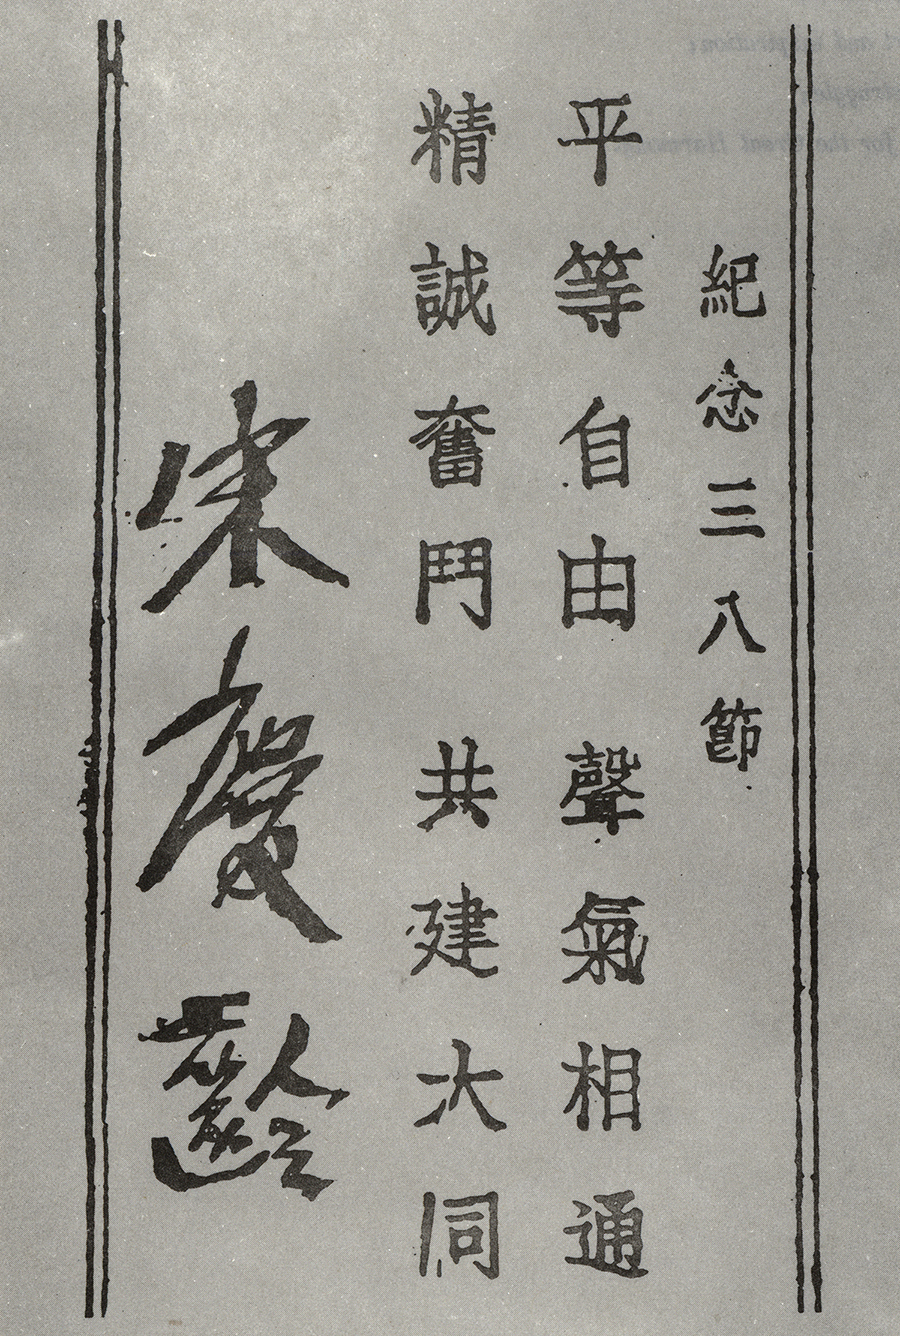 紀念三八節
平等自由 聲氣相通
精誠奮鬥 共建大同
宋慶齡